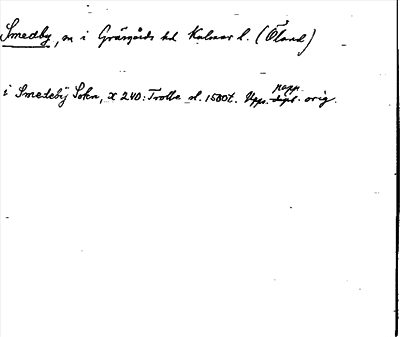 Smedby, sn i Gräsgårds hd Kalmar l. (Öland)
i Smedebÿ Sokn, x 240: Trolle sl. 1500t. Upps. papp. orig.